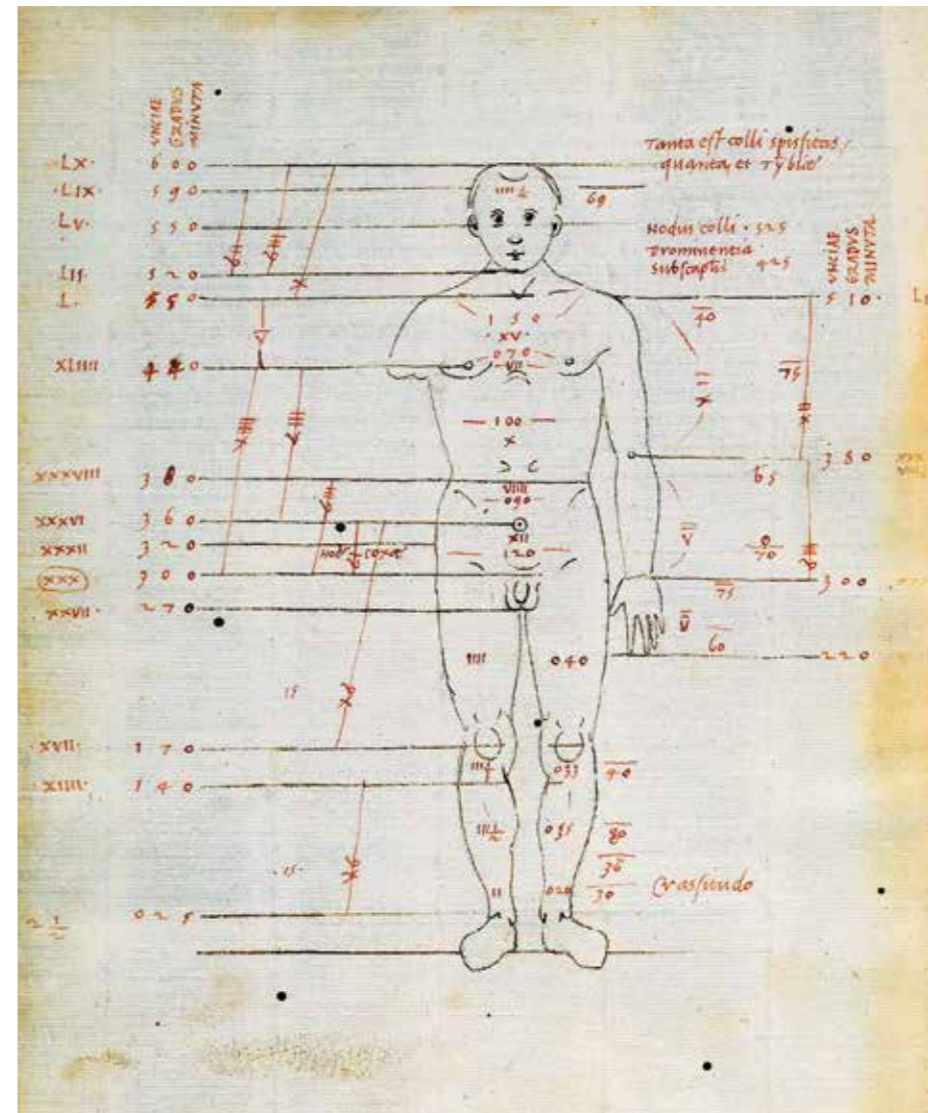 VNCIAE
GRADVS
MINVTA
·LX· 6 0 0
·LIX· 5 9 0
Lv· 5 5 0
LII 5 2 0
L·
XLIIII
XXXVIII
XXXVI 3 6 0
XXXII 3 2 0
XXX 3 0 0
XXVII· 2 7 0
·XVII· 1 7 0
·XIIII· 1 4 0
2 1/2 0 2 5
15
·15·
Tanta est colli spissitas,
quanta et Tybiae
69
Nodus colli · 525
prominentia
subscaptis 425
VNCIAE
GRADVS
MINVTA
5 10·
40
75
3 8 0
65
70
3 0 0
75
60
2 2 0
1 5 0
·XV·
0 7 0
VII
100
X
VIIII
090
XII
120
IIII 040
033
40
035
80
36
30
II 020
Crassitudo